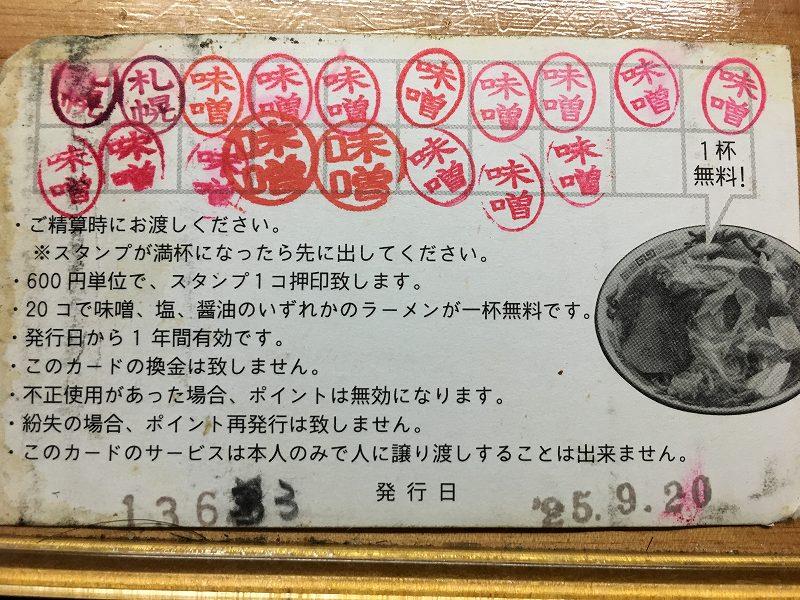 札幌 札幌 味噌 味噌 味噌 味噌 味噌 味噌 味噌 味噌
味噌 味噌 味噌 味噌 味噌 味噌 味噌 味噌
1杯
無料!
・ご精算時にお渡しください。
※スタンプが満杯になったら先に出してください。
・600円単位で、スタンプ1コ押印致します。
・20コで味噌、塩、醤油のいずれかのラーメンが一杯無料です。
・発行日から1年間有効です。
・このカードの換金は致しません。
・不正使用があった場合、ポイントは無効になります。
・紛失の場合、ポイント再発行は致しません。
・このカードのサービスは本人のみで人に譲り渡しすることは出来ません。
発行日 '25.9.20